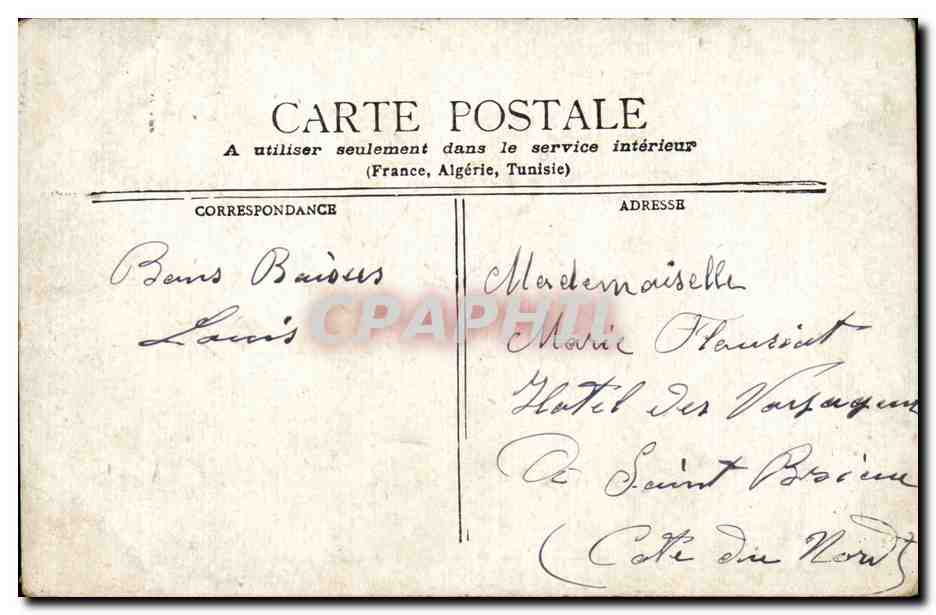 CARTE POSTALE
A utiliser seulement dans le service intérieur
(France, Algérie, Tunisie)
CORRESPONDANCE
ADRESSE
Bons Baisers
Louis
CPAPHIL
Mademoiselle
Marie Flouriat
Hotel des Voyageurs
A Saint Brieuc
(Cote du Nord)